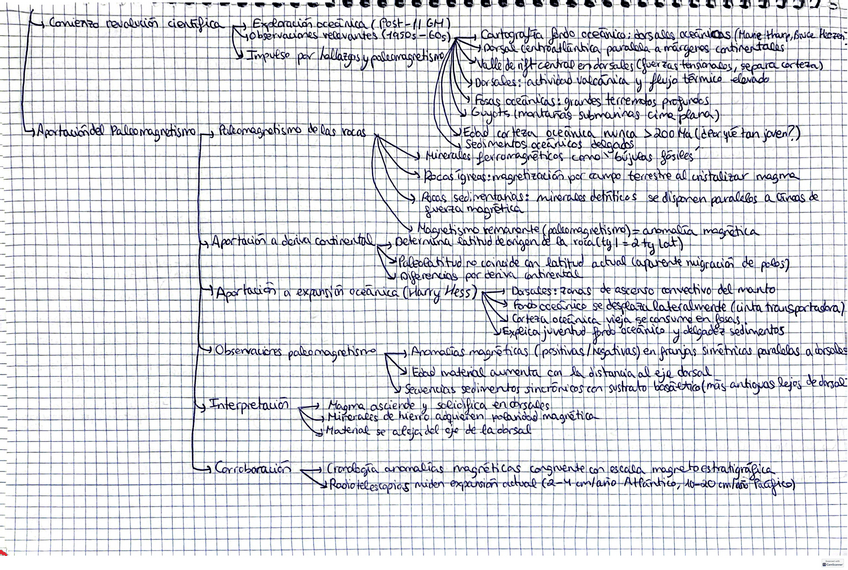 Comienzo revolución científica
Exploración oceánica (Post-II GM)
observaciones relevantes (1950s-60s)
Impulso por hallazgos y paleomagnetismo
Cartografía fondo oceánico: dorsales oceánicas (Marie Tharp, Bruce Heezen)
Dorsal centroatlántica paralela a márgenes continentales
Valle de rift central en dorsales (fuerzas tensionales, separa corteza)
Dorsales: actividad volcánica y flujo térmico elevado
Fosas oceánicas: grandes terremotos profundos
Guyots (montañas submarinas cima plana)
Edad corteza oceánica nunca > 200 Ma (¿Por qué tan joven?)
Sedimentos oceánicos delgados
Aportación del Paleomagnetismo
Paleomagnetismo de las rocas
Minerales ferromagnéticos como "bújulas fósiles"
Rocas ígneas: magnetización por campo terrestre al cristalizar magma
Rocas sedimentarias: minerales detríticos se disponen paralelos a líneas de
fuerza magnética
Magnetismo remanente (paleomagnetismo) = anomalía magnética
Aportación a deriva continental
Determina latitud de origen de la roca (tg I = 2 tg Lat)
Paleolatitud no coincide con latitud actual (aparente migración de polos)
Diferencias por deriva continental
Aportación a expansión oceánica (Harry Hess)
Dorsales: zonas de ascenso convectivo del manto
Fondo oceánico se desplaza lateralmente (cinta transportadora)
Corteza oceánica vieja se consume en fosas
Explica juventud fondo oceánico y delgadez sedimentos
Observaciones paleomagnetismo
Anomalías magnéticas (positivas/negativas) en franjas simétricas paralelas a dorsales
Edad material aumenta con la distancia al eje dorsal
Secuencias sedimentos sincrónicos con sustrato basáltico (más antiguas lejos de dorsal
Interpretación
Magma asciende y solidifica en dorsales
Minerales de hierro adquieren polaridad magnética
Material se aleja del eje de la dorsal
Corroboración
Cronología anomalías magnéticas congruente con escala magnetoestratigráfica
Radiotelescopios miden expansión actual (2-4 cm/año Atlántico, 10-20 cm/año Pacífico)
CamScanner